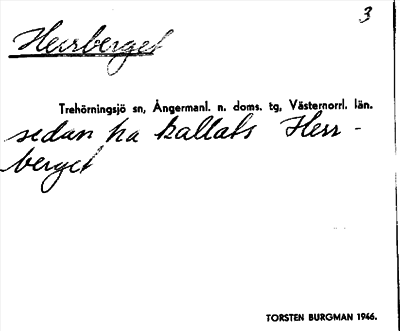 3
Herrberget
Trehörningsjö sn, Ångermanl. n. doms. tg, Västernorrl. län.
sedan ha kallats Herr-
berget
TORSTEN BURGMAN 1946.